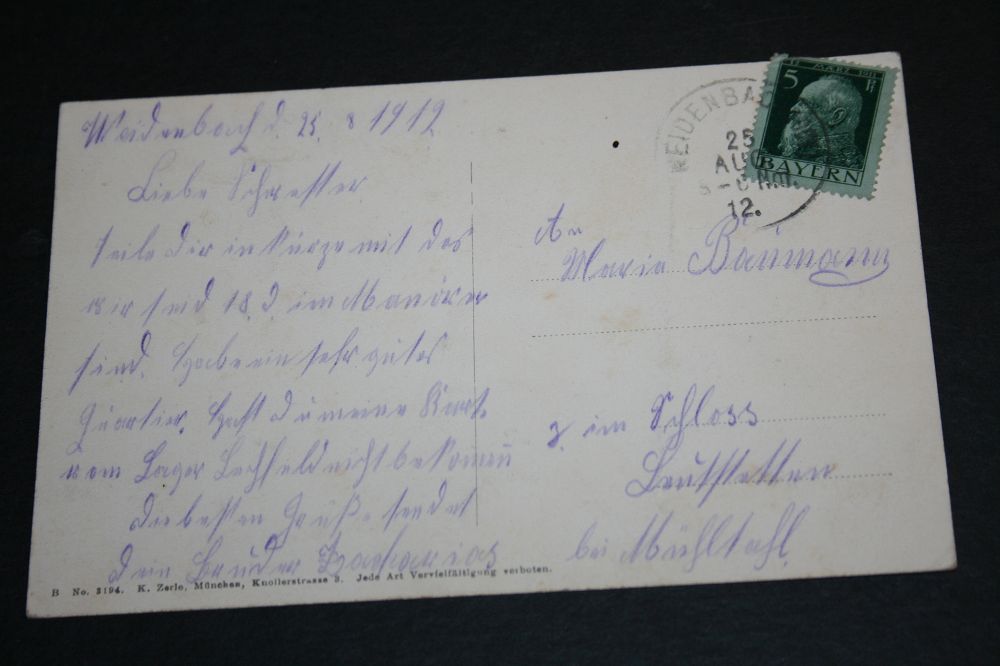 Weidenbach d. 25. 8 1912
Liebe Schwester
teile dir in kürze mit das
wir seid 18. d. im Manöver
sind. Habe ein sehr gutes
Quartier. Hast Du meine Karte
vom Lager Lechfeld nicht bekomen
die besten Grüße sendet
dein Bruder Zacharias
B No. 3194. K. Zerle, München, Knollerstrasse 3. Jede Art Vervielfältigung verboten.
WEIDENBA
25
AUG
12.
14 MÄRZ 1911
5 Pf
BAYERN
An
Maria Baümann
z. im Schloss
Leutstetten
bei Mühltahl